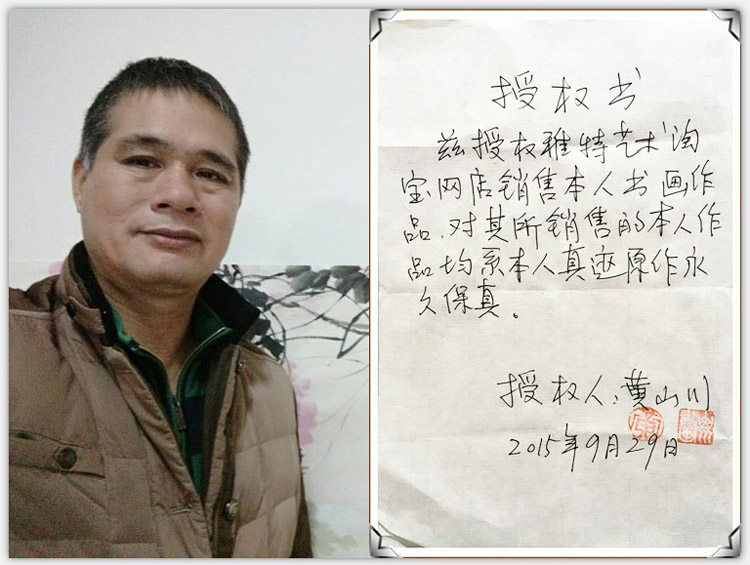 授权书
兹授权雅特艺术淘
宝网店销售本人书画作
品.对其所销售的本人作
品均系本人真迹原作永
久保真.
授权人:黄山川
2015年9月29日